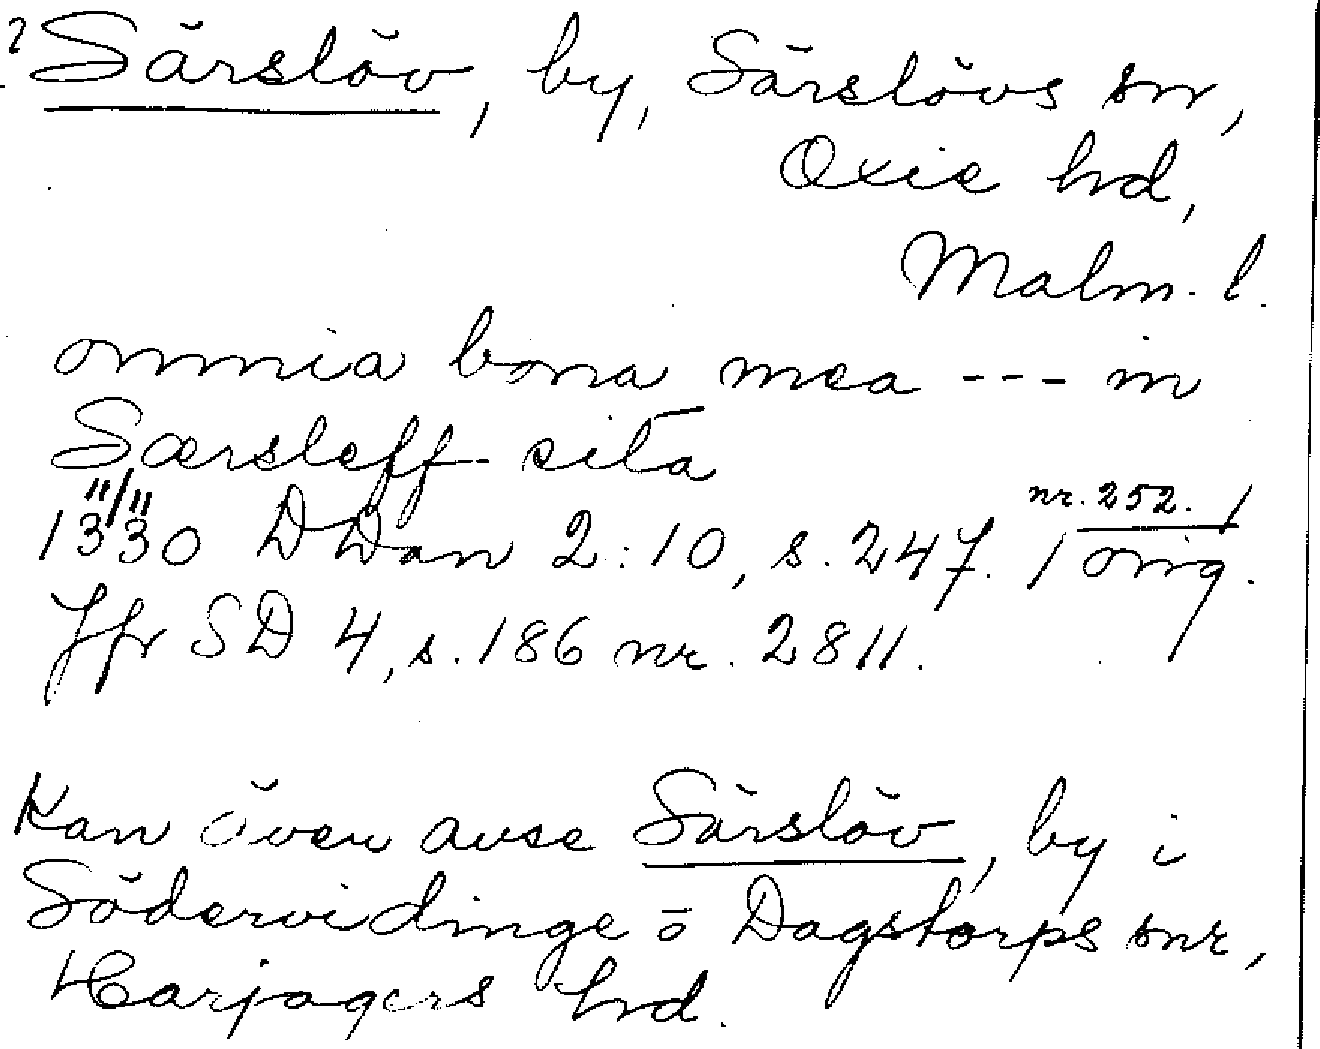 ? Särslöv, by, Särslövs sn,
Oxie hd,
Malm. l.
omnia bona mea --- in
Særsleff sita
11/11
nr. 252.
1330 DDan 2:10, s. 247. / orig.
Jfr SD 4, s. 186 nr. 2811.
Kan även avse Särslöv, by i
Södervidinge o Dagstorps snr,
Harjagers hd.